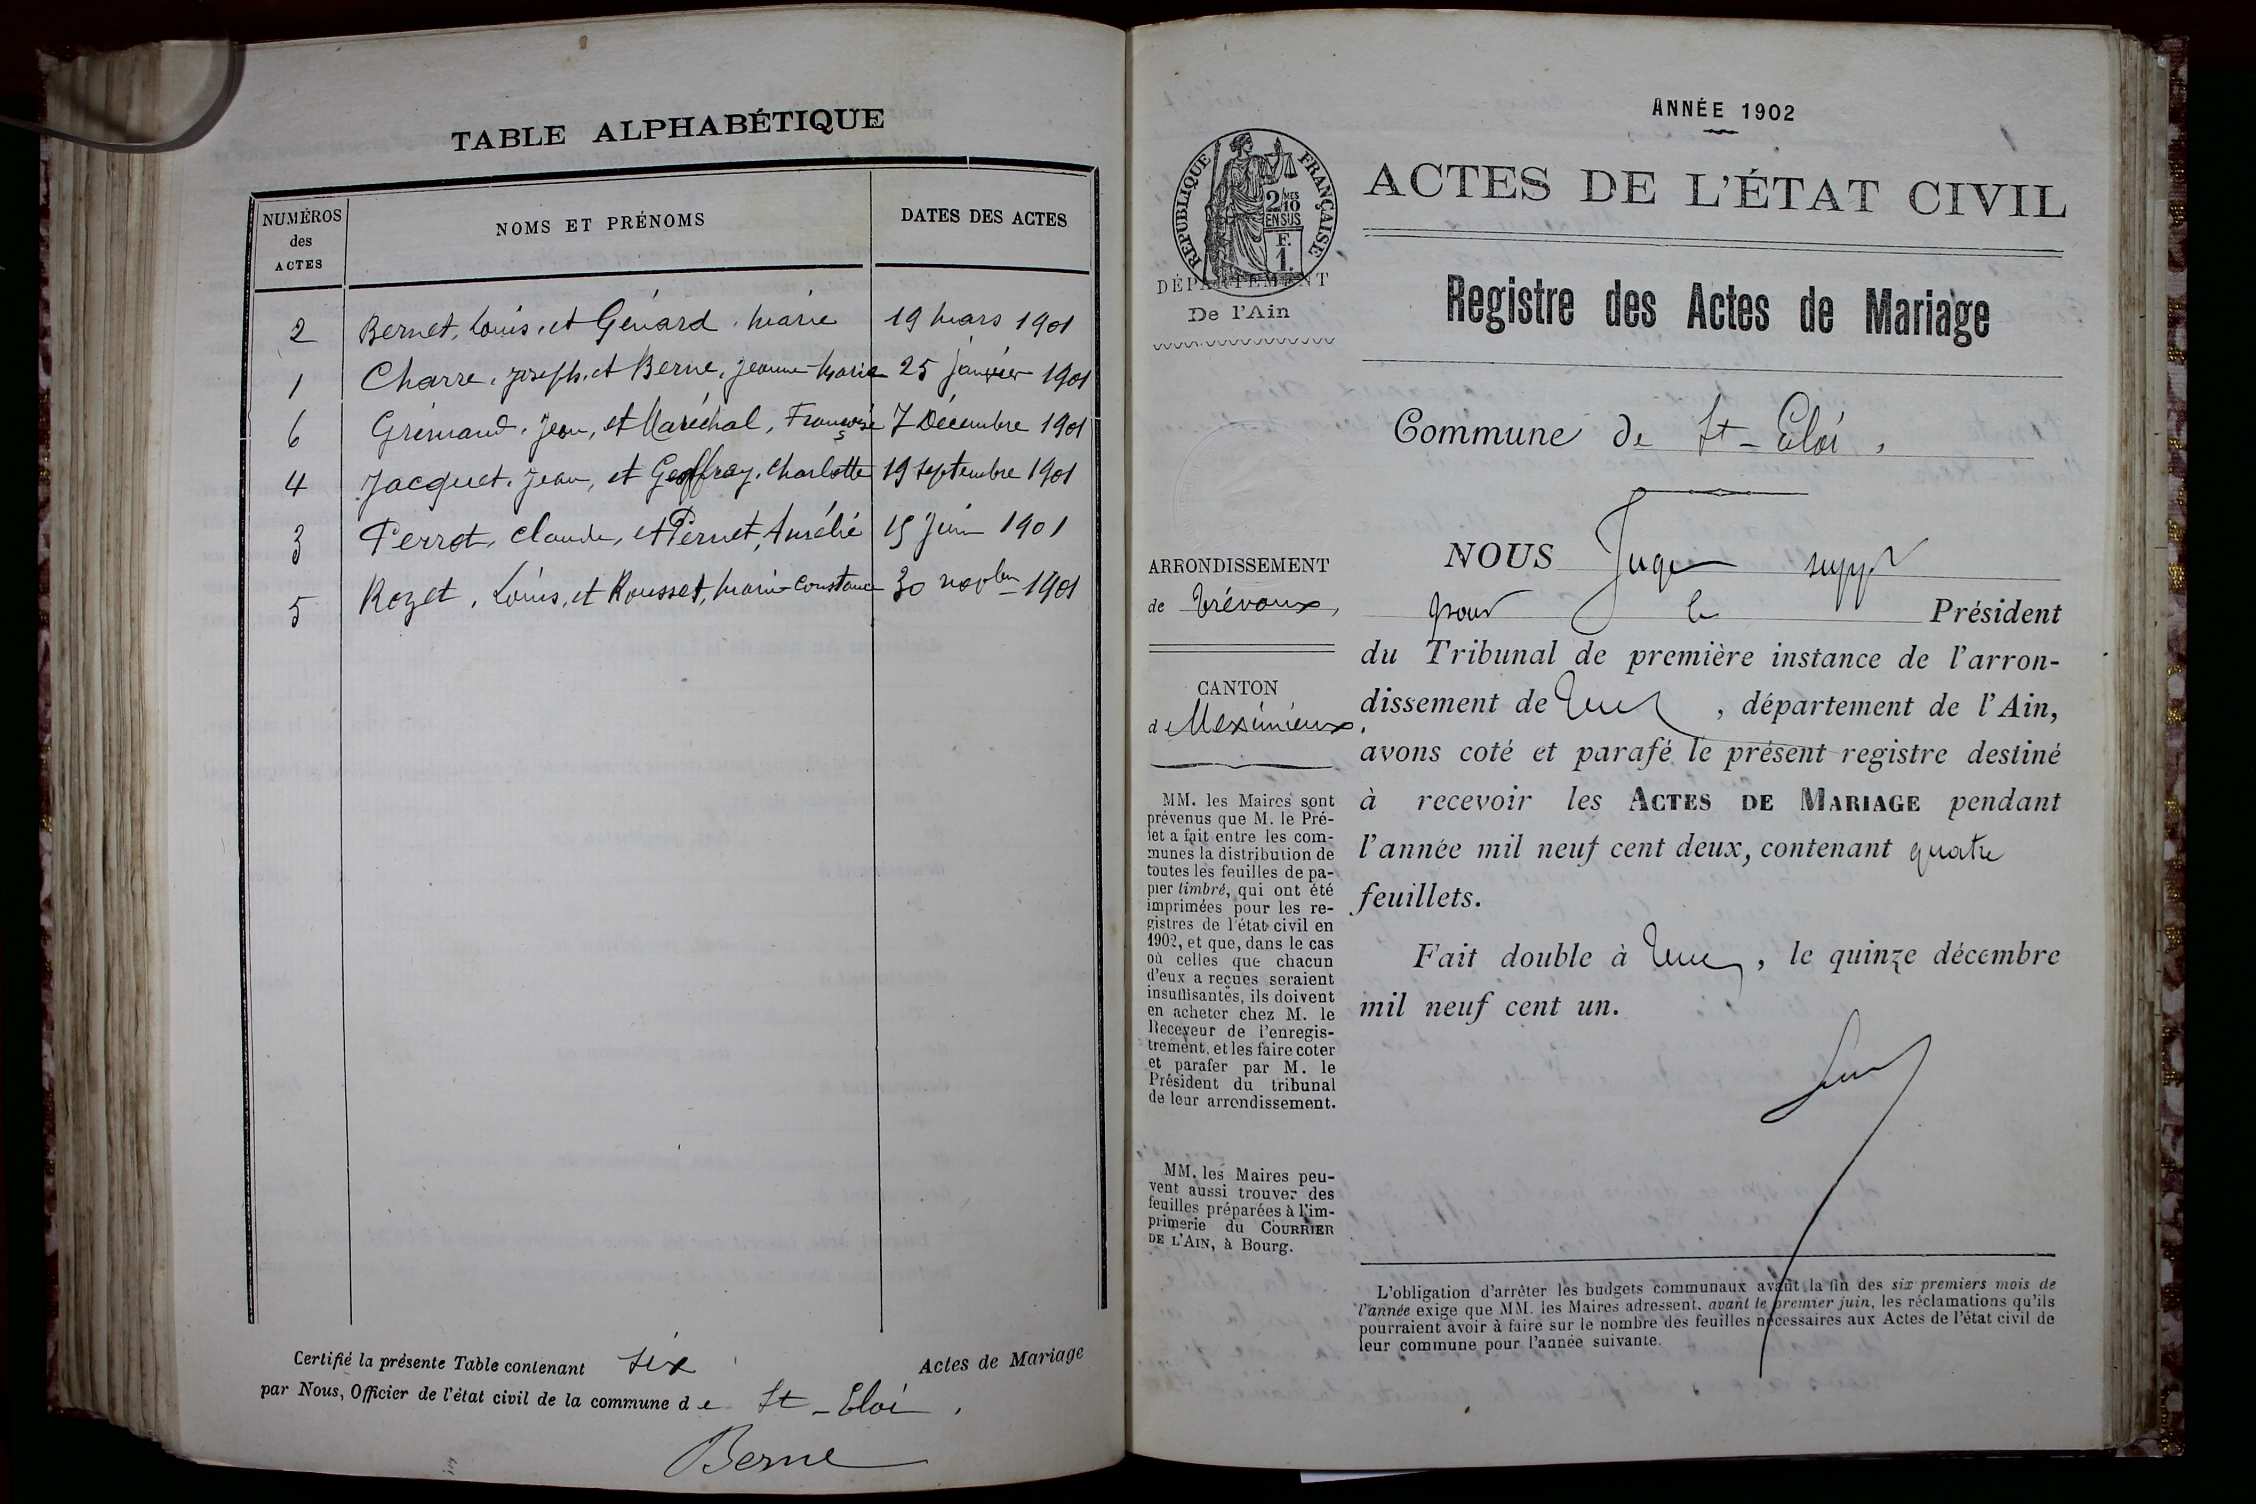 TABLE ALPHABÉTIQUE
NUMÉROS
des
ACTES
NOMS ET PRÉNOMS
DATES DES ACTES
2 Bernet, Louis, et Génard, Marie 19 Mars 1901
1 Charre, Joseph, et Berne, Jeanne-Marie 25 janvier 1901
6 Grimaud, Jean, et Maréchal, Françoise 7 Décembre 1901
4 Jacquet, Jean, et Geoffray, Charlotte 19 septembre 1901
3 Perrot, Claude, et Pernet, Aurélie 15 Juin 1901
5 Rozet, Louis, et Rousset, Marie-Constance 30 novbre 1901
Certifié la présente Table contenant six Actes de Mariage
par Nous, Officier de l'état civil de la commune de St-Eloi.
Berne
ANNÉE 1902
ACTES DE L'ÉTAT CIVIL
RÉPUBLIQUE FRANÇAISE
2/10 MES
EN SUS
F.
1.
DÉPARTEMENT
De l'Ain
Registre des Actes de Mariage
Commune de St-Eloi,
ARRONDISSEMENT
de Trévoux,
CANTON
de Meximieux,
MM. les Maires sont
prévenus que M. le Pré-
fet a fait entre les com-
munes la distribution de
toutes les feuilles de pa-
pier timbré, qui ont été
imprimées pour les re-
gistres de l'état civil en
1902, et que, dans le cas
où celles que chacun
d'eux a reçues seraient
insuffisantes, ils doivent
en acheter chez M. le
Receveur de l'enregis-
trement, et les faire coter
et parafer par M. le
Président du tribunal
de leur arrondissement.
MM. les Maires peu-
vent aussi trouver des
feuilles préparées à l'im-
primerie du COURRIER
DE L'AIN, à Bourg.
NOUS Juge suppt
pour le Président
du Tribunal de première instance de l'arron-
dissement de , département de l'Ain,
avons coté et parafé le présent registre destiné
à recevoir les ACTES DE MARIAGE pendant
l'année mil neuf cent deux, contenant quatre
feuillets.
Fait double à , le quinze décembre
mil neuf cent un.
L'obligation d'arrêter les budgets communaux avant la fin des six premiers mois de
l'année exige que MM. les Maires adressent, avant le premier juin, les réclamations qu'ils
pourraient avoir à faire sur le nombre des feuilles nécessaires aux Actes de l'état civil de
leur commune pour l'année suivante.